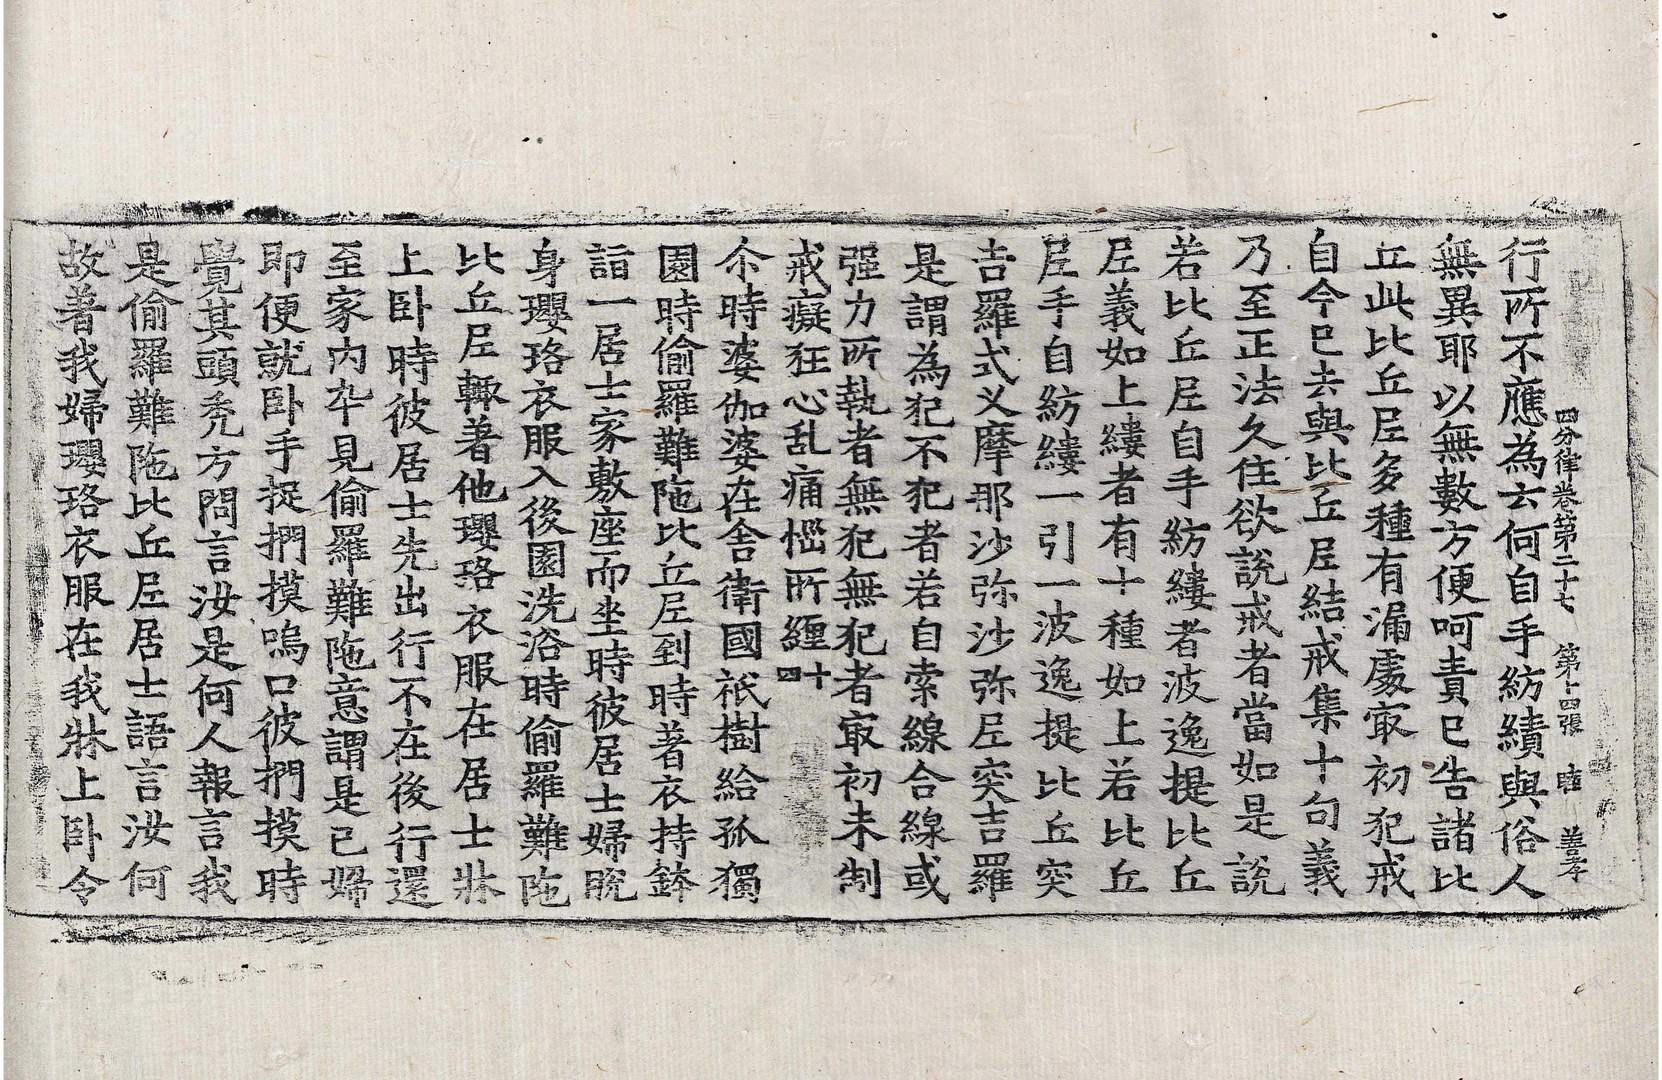 四分律卷第二十七 第十四張 睦 善孝
行所不應為云何自手紡績與俗人
無異耶以無數方便呵責已告諸比
丘此比丘尼多種有漏處㝡初犯戒
自今已去與比丘尼結戒集十句義
乃至正法久住欲說戒者當如是說
若比丘尼自手紡縷者波逸提比丘
尼義如上縷者有十種如上若比丘
尼手自紡縷一引一波逸提比丘突
吉羅式叉摩那沙弥沙弥尼突吉羅
是謂為犯不犯者若自索線合線或
强力所執者無犯無犯者㝡初未制
戒癡狂心乱痛惱所纏 四十
尒時婆伽婆在舍衛國祇樹給孤獨
園時偷羅難陁比丘尼到時著衣持鉢
詣一居士家敷座而坐時彼居士婦脫
身瓔珞衣服入後園洗浴時偷羅難陁
比丘尼輙著他瓔珞衣服在居士牀
上卧時彼居士先出行不在後行還
至家內卒見偷羅難陁意謂是已婦
即便就卧手捉捫摸嗚口彼捫摸時
覺其頭禿方問言汝是何人報言我
是偷羅難陁比丘尼居士語言汝何
故著我婦瓔珞衣服在我牀上卧令